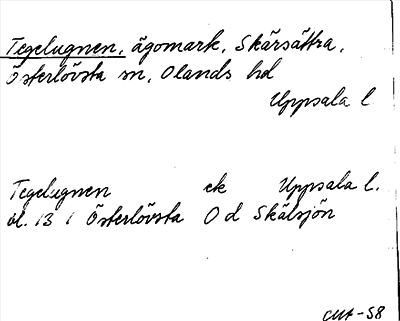 Tegelugnen, ägomark, Skärsättra,
Österlövsta sn, Olands hd
Uppsala l
Tegelugnen ek Uppsala l.
bl. 13 i Österlövsta Od Skälsjön
-58